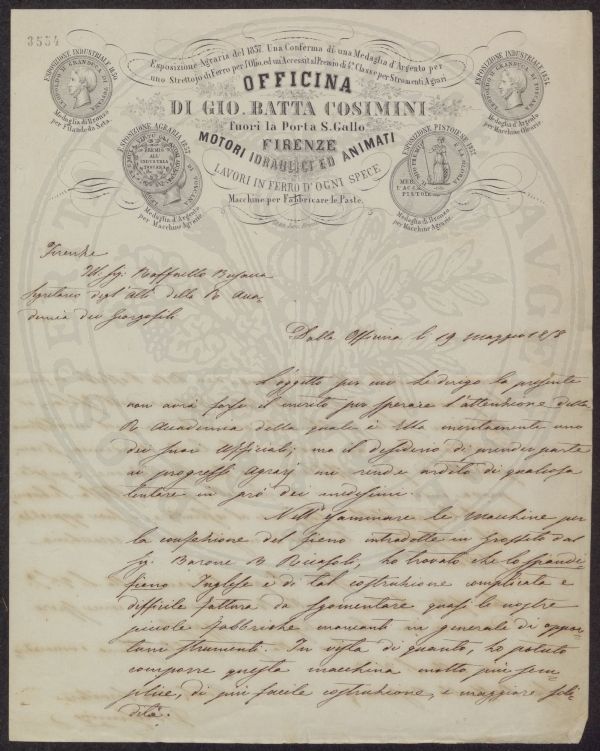 3554
Esposizione Agraria del 1857. Una Conferma di una Medaglia d'Argento per
uno Strettojo di Ferro per l'Olio, ed un Accessit al Premio di 4ª Classe per Strumenti Agrari
OFFICINA
DI GIO. BATTA COSIMINI
fuori la Porta S. Gallo
FIRENZE
MOTORI IDRAULICI ED ANIMATI
LAVORI IN FERRO D'OGNI SPECE
Macchine per Fabbricare le Paste.
ESPOSIZIONE INDUSTRIALE 1850
LEOPOLDO II GRANDUCA DI TOSCANA
Medaglia di Bronzo
per Filande da Seta.
ESPOSIZIONE INDUSTRIALE 1854
LEOPOLDO II GRANDUCA DI TOSCANA
Medaglia di Bronzo
per Macchine Olearie
ESPOSIZIONE AGRARIA
PREMIO
ALL'
INDUSTRIA
TOSCANA
Medaglia d'Argento
per Macchine Agrarie
ESPOSIZIONE PISTOIESE
Medaglia di Bronzo
per Macchine Agrarie
Firenze
Ill. Sig. Raffaello Busacca
Segretario degl'Atti della R Acca-
demia dei Georgofili
Dalla Officina li 19 Maggio 1858
L'oggetto per cui Le dirigo la presente
non avrà forse il merito per sperare l'attenzione della
R Accademia della quale è Ella meritamente uno
dei suoi Officiali; ma il desiderio di prender parte
ai progressi Agrarj mi rende ardito di qualcosa
tentare in prò dei medesimi.
Nell'esaminare le Macchine per
la confezione del fieno introdotte in Grosseto dal
Sig. Barone B. Ricasoli, ho trovato che lo spandi-
fieno Inglese è di tal costruzione complicata e
difficile fattura da sgomentare quasi le nostre
piccole fabbriche mancanti in generale di oppor-
tuni strumenti. In vista di quanto, ho potuto
comporre questa macchina molto più sem-
plice, di più facile costruzione, e maggiore soli-
dità.